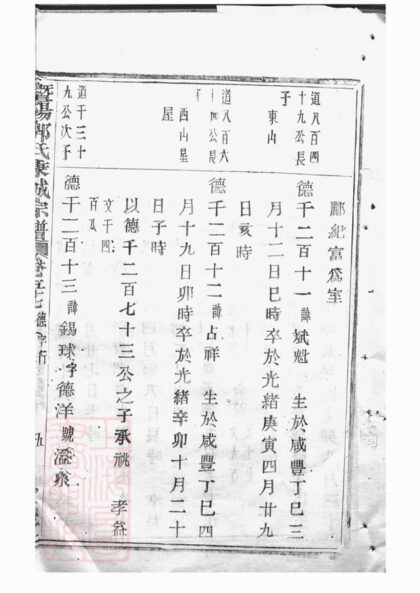 酈紀富爲室
道八百四
十九公長
子 東山
德千二百十一諱斌魁 生於咸豐丁巳三
月十二日巳時卒於光緒庚寅四月廿九
日亥時
道八百六
公長
西山墓
屋
德千二百十二諱占祥 生於咸豐丁巳四
月十九日卯時卒於光緒辛卯十月二十
日子時
以德千二百七十三公之子承祧 孝
文千四
百
道千三十
九公次子
德千二百十三諱錫球字德洋號溢泉
暨陽 氏 城宗譜 卷 德字行 九